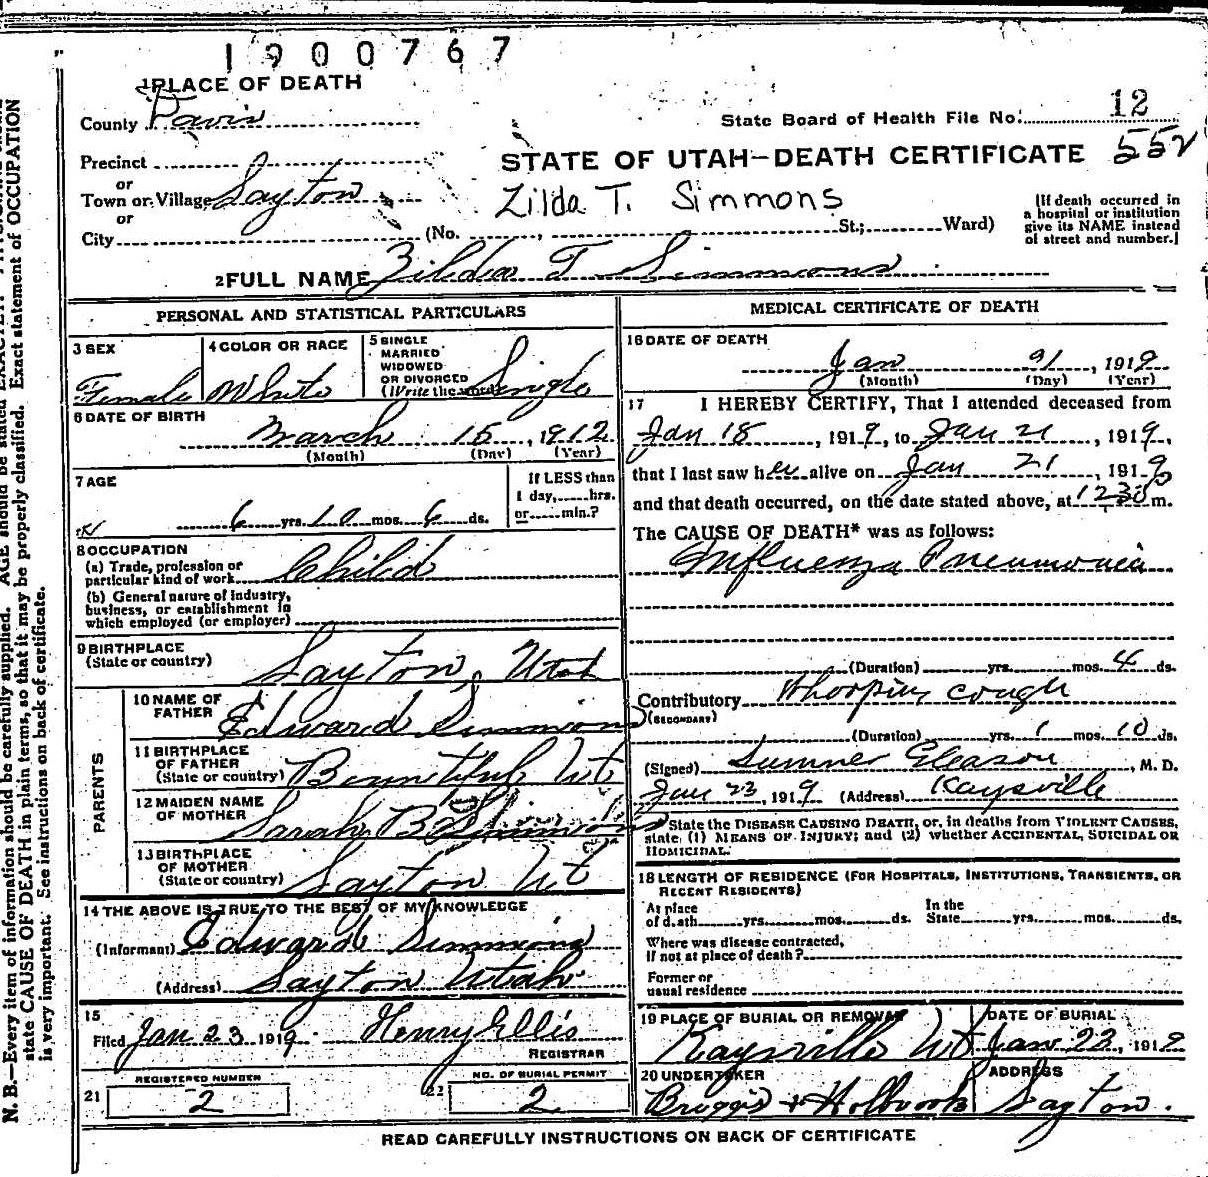 1900767
1 PLACE OF DEATH
County Davis
State Board of Health File No. 12
552
Precinct
STATE OF UTAH—DEATH CERTIFICATE
or
Town or Village Layton
Zilda T. Simmons
or
City (No. , St.; Ward)
(If death occurred in
a hospital or institution
give its NAME instead
of street and number.)
2 FULL NAME Zilda T Simmons
PERSONAL AND STATISTICAL PARTICULARS
3 SEX
Female
4 COLOR OR RACE
White
5 SINGLE
MARRIED
WIDOWED
OR DIVORCED
(Write the word) Single
6 DATE OF BIRTH
March 15, 1912
(Month) (Day) (Year)
7 AGE
6 yrs. 10 mos. 6 ds.
If LESS than
1 day, hrs.
or min.?
8 OCCUPATION
(a) Trade, profession or
particular kind of work Child
(b) General nature of industry,
business, or establishment in
which employed (or employer)
9 BIRTHPLACE
(State or country) Layton, Utah
PARENTS
10 NAME OF
FATHER Edward Simmons
11 BIRTHPLACE
OF FATHER
(State or country) Bountiful Ut
12 MAIDEN NAME
OF MOTHER Sarah B Simmons
13 BIRTHPLACE
OF MOTHER
(State or country) Layton Ut
14 THE ABOVE IS TRUE TO THE BEST OF MY KNOWLEDGE
(Informant) Edward Simmons
(Address) Layton Utah
15
Filed Jan 23 1919 Henry Ellis
REGISTRAR
REGISTERED NUMBER
21 2
NO. OF BURIAL PERMIT
22 2
MEDICAL CERTIFICATE OF DEATH
16 DATE OF DEATH
Jan 21, 1919
(Month) (Day) (Year)
17 I HEREBY CERTIFY, That I attended deceased from
Jan 18, 1919, to Jan 21, 1919,
that I last saw her alive on Jan 21, 1919
and that death occurred, on the date stated above, at 1230 m.
The CAUSE OF DEATH* was as follows:
Influenza Pneumonia
(Duration) yrs. mos. 4 ds.
Contributory Whooping cough
(SECONDARY)
(Duration) yrs. 1 mos. 10 ds.
(Signed) Sumner Gleason, M. D.
Jan 23, 1919 (Address) Kaysville
*State the DISEASE CAUSING DEATH, or, in deaths from VIOLENT CAUSES,
state (1) MEANS OF INJURY; and (2) whether ACCIDENTAL, SUICIDAL OR
HOMICIDAL.
18 LENGTH OF RESIDENCE (FOR HOSPITALS, INSTITUTIONS, TRANSIENTS, OR
RECENT RESIDENTS)
At place
of death yrs. mos. ds.
In the
State yrs. mos. ds.
Where was disease contracted,
if not at place of death?
Former or
usual residence
19 PLACE OF BURIAL OR REMOVAL
Kaysville Ut
DATE OF BURIAL
Jan 22, 1919
20 UNDERTAKER
Briggs + Holbrook
ADDRESS
Layton.
READ CAREFULLY INSTRUCTIONS ON BACK OF CERTIFICATE
N. B.—Every item of information should be carefully supplied. AGE should be stated EXACTLY.
state CAUSE OF DEATH in plain terms, so that it may be properly classified. Exact statement of OCCUPATION
is very important. See instructions on back of certificate.